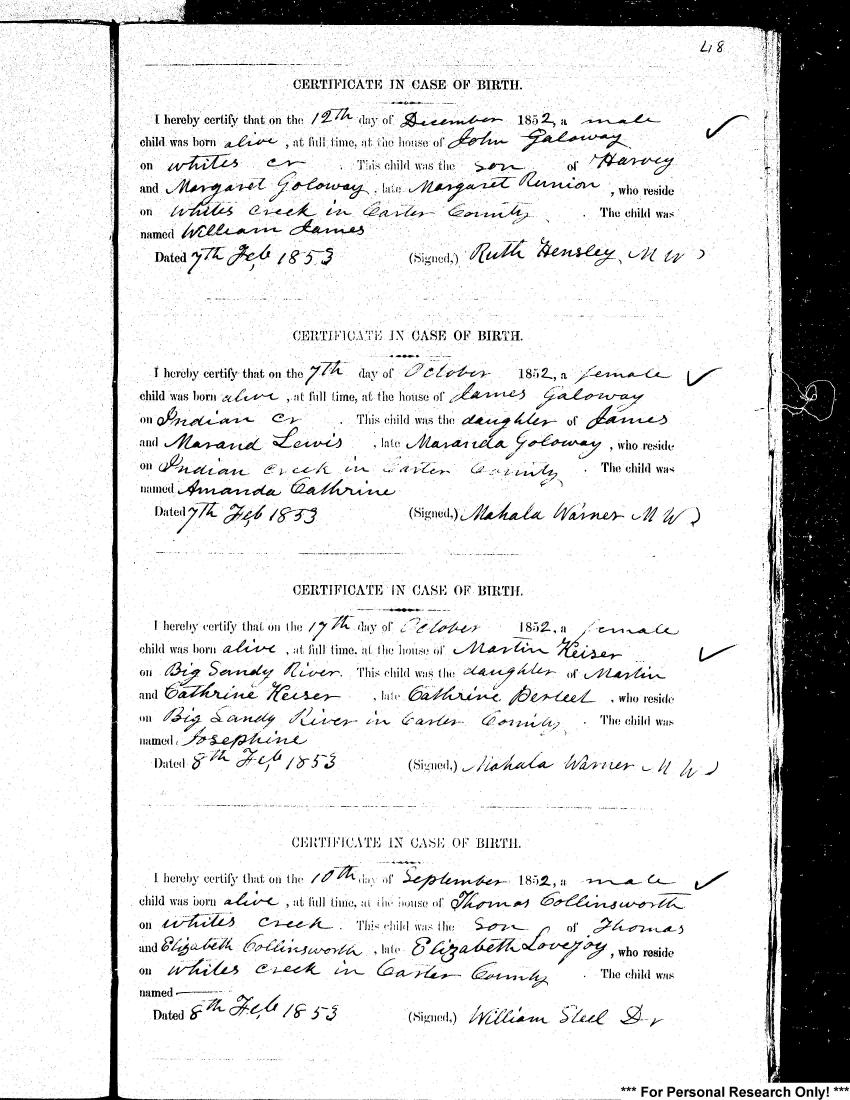 48
CERTIFICATE IN CASE OF BIRTH.
I hereby certify that on the 12th day of December 1852, a male
child was born alive, at full time, at the house of John Galoway
on whites cr. This child was the son of Harvey
and Margaret Goloway, late Margaret Runion, who reside
on whites creek in Carter County. The child was
named William James
Dated 7th Feb 1853 (Signed,) Ruth Hensley M W
CERTIFICATE IN CASE OF BIRTH.
I hereby certify that on the 7th day of October 1852, a female
child was born alive, at full time, at the house of James Galoway
on Indian cr. This child was the daughter of James
and Marand Lewis, late Maranda Goloway, who reside
on Indian creek in Carter County. The child was
named Amanda Cathrine
Dated 7th Feb 1853 (Signed,) Mahala Warner M W
CERTIFICATE IN CASE OF BIRTH.
I hereby certify that on the 17th day of October 1852, a female
child was born alive, at full time, at the house of Martin Keiser
on Big Sandy River. This child was the daughter of Martin
and Cathrine Keiser, late Cathrine, who reside
on Big Sandy River in Carter County. The child was
named Josephine
Dated 8th Feb 1853 (Signed,) Mahala Warner M W
CERTIFICATE IN CASE OF BIRTH.
I hereby certify that on the 10th day of September 1852, a male
child was born alive, at full time, at the house of Thomas Collinsworth
on whites creek. This child was the son of Thomas
and Elizabeth Collinsworth, late Elizabeth Lovejoy, who reside
on whites creek in Carter County. The child was
named
Dated 8th Feb 1853 (Signed,) William Steel Dr
*** For Personal Research Only! ***